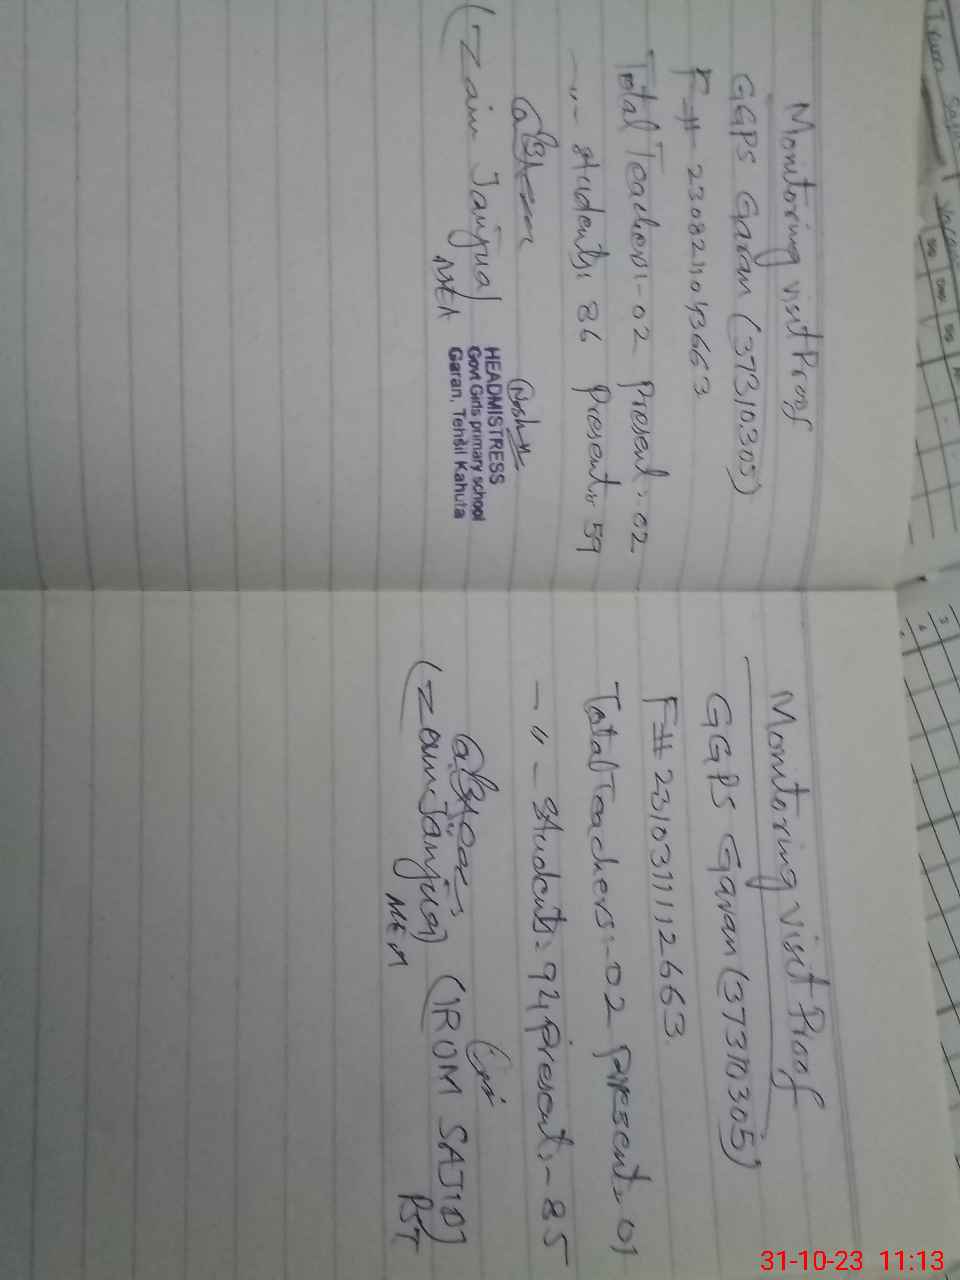 Monitoring visit Proof
GGPS Garan (37310305)
F# 2308211043663
Total Teachers:- 02 Present:- 02
-〃- Students: 86 Present:- 59
(Zain Janjua)
MEA
HEADMISTRESS
Govt Girls primary school
Garan, Tehsil Kahuta
Monitoring visit Proof
GGPS Garan (37310305)
F# 2310311112663
Total Teachers:- 02 Present:- 01
-〃- Students:- 94 Present:- 85
(Zain Janjua)
MEA
(IROM SAJID)
PST
31-10-23 11:13